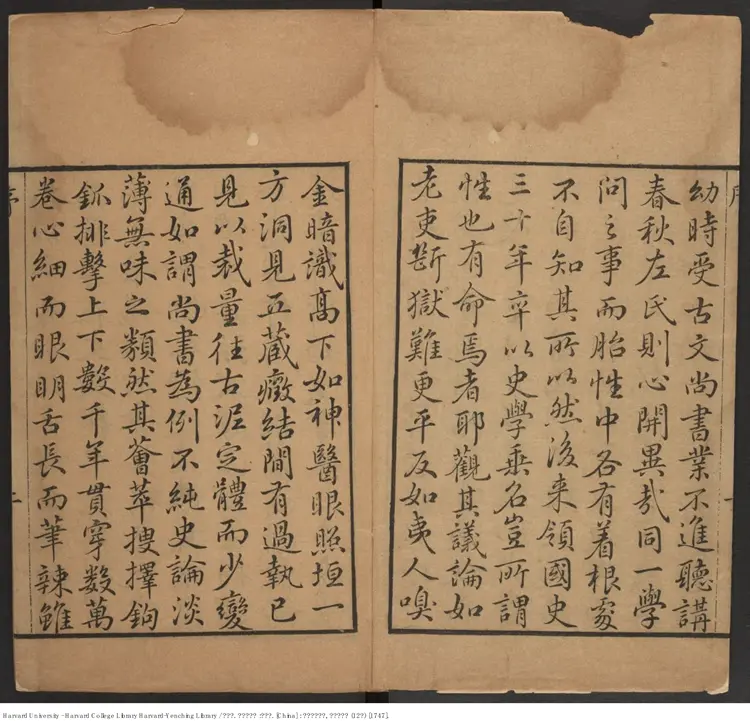 幼時受古文尚書業不進聽講
春秋左氏則心開異哉同一學
問之事而胎性中各有着根處
不自知其所以然後来領國史
三十年卒以史學乗名豈所謂
性也有命焉者耶觀其議論如
老吏斷獄難更平反如夷人嗅
金暗識髙下如神醫眼照垣一
方洞見五蔵癥結間有過執已
見以裁量往古泥定體而少變
通如謂尚書為例不純史論淡
薄無味之類然其薈萃搜擇鉤
釽排擊上下數千年貫穿數萬
卷心細而眼明舌長而筆辣雖
序
Harvard University - Harvard College Library Harvard-Yenching Library / ???. ????? :???. [China] : ??????, ????? (12?) [1747].